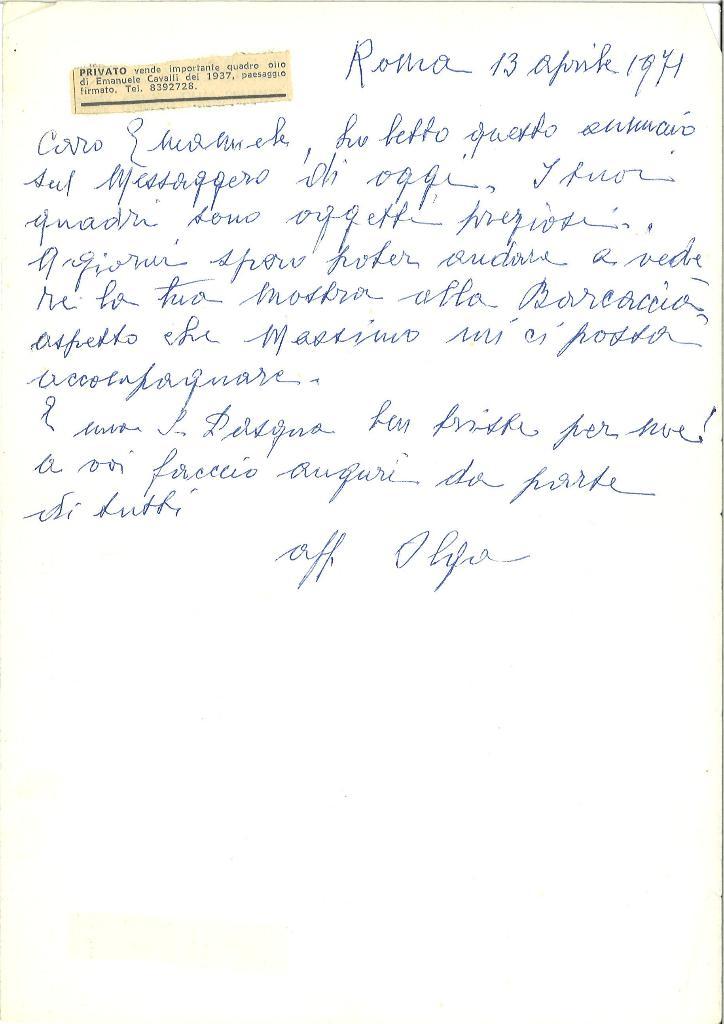 PRIVATO vende importante quadro olio
di Emanuele Cavalli del 1937, paesaggio
firmato. Tel. 8392728.
Roma 13 aprile 1971
Caro Emanuele, ho letto questo annuncio
sul Messaggero di oggi. I tuoi
quadri sono oggetti preziosi.
A giorni spero poter andare a vede
re la tua mostra alla Barcaccia,
aspetto che Massimo mi ci possa
accompagnare.
È una S. Pasqua ben triste per noi!
a voi faccio auguri da parte
di tutti
aff Olga